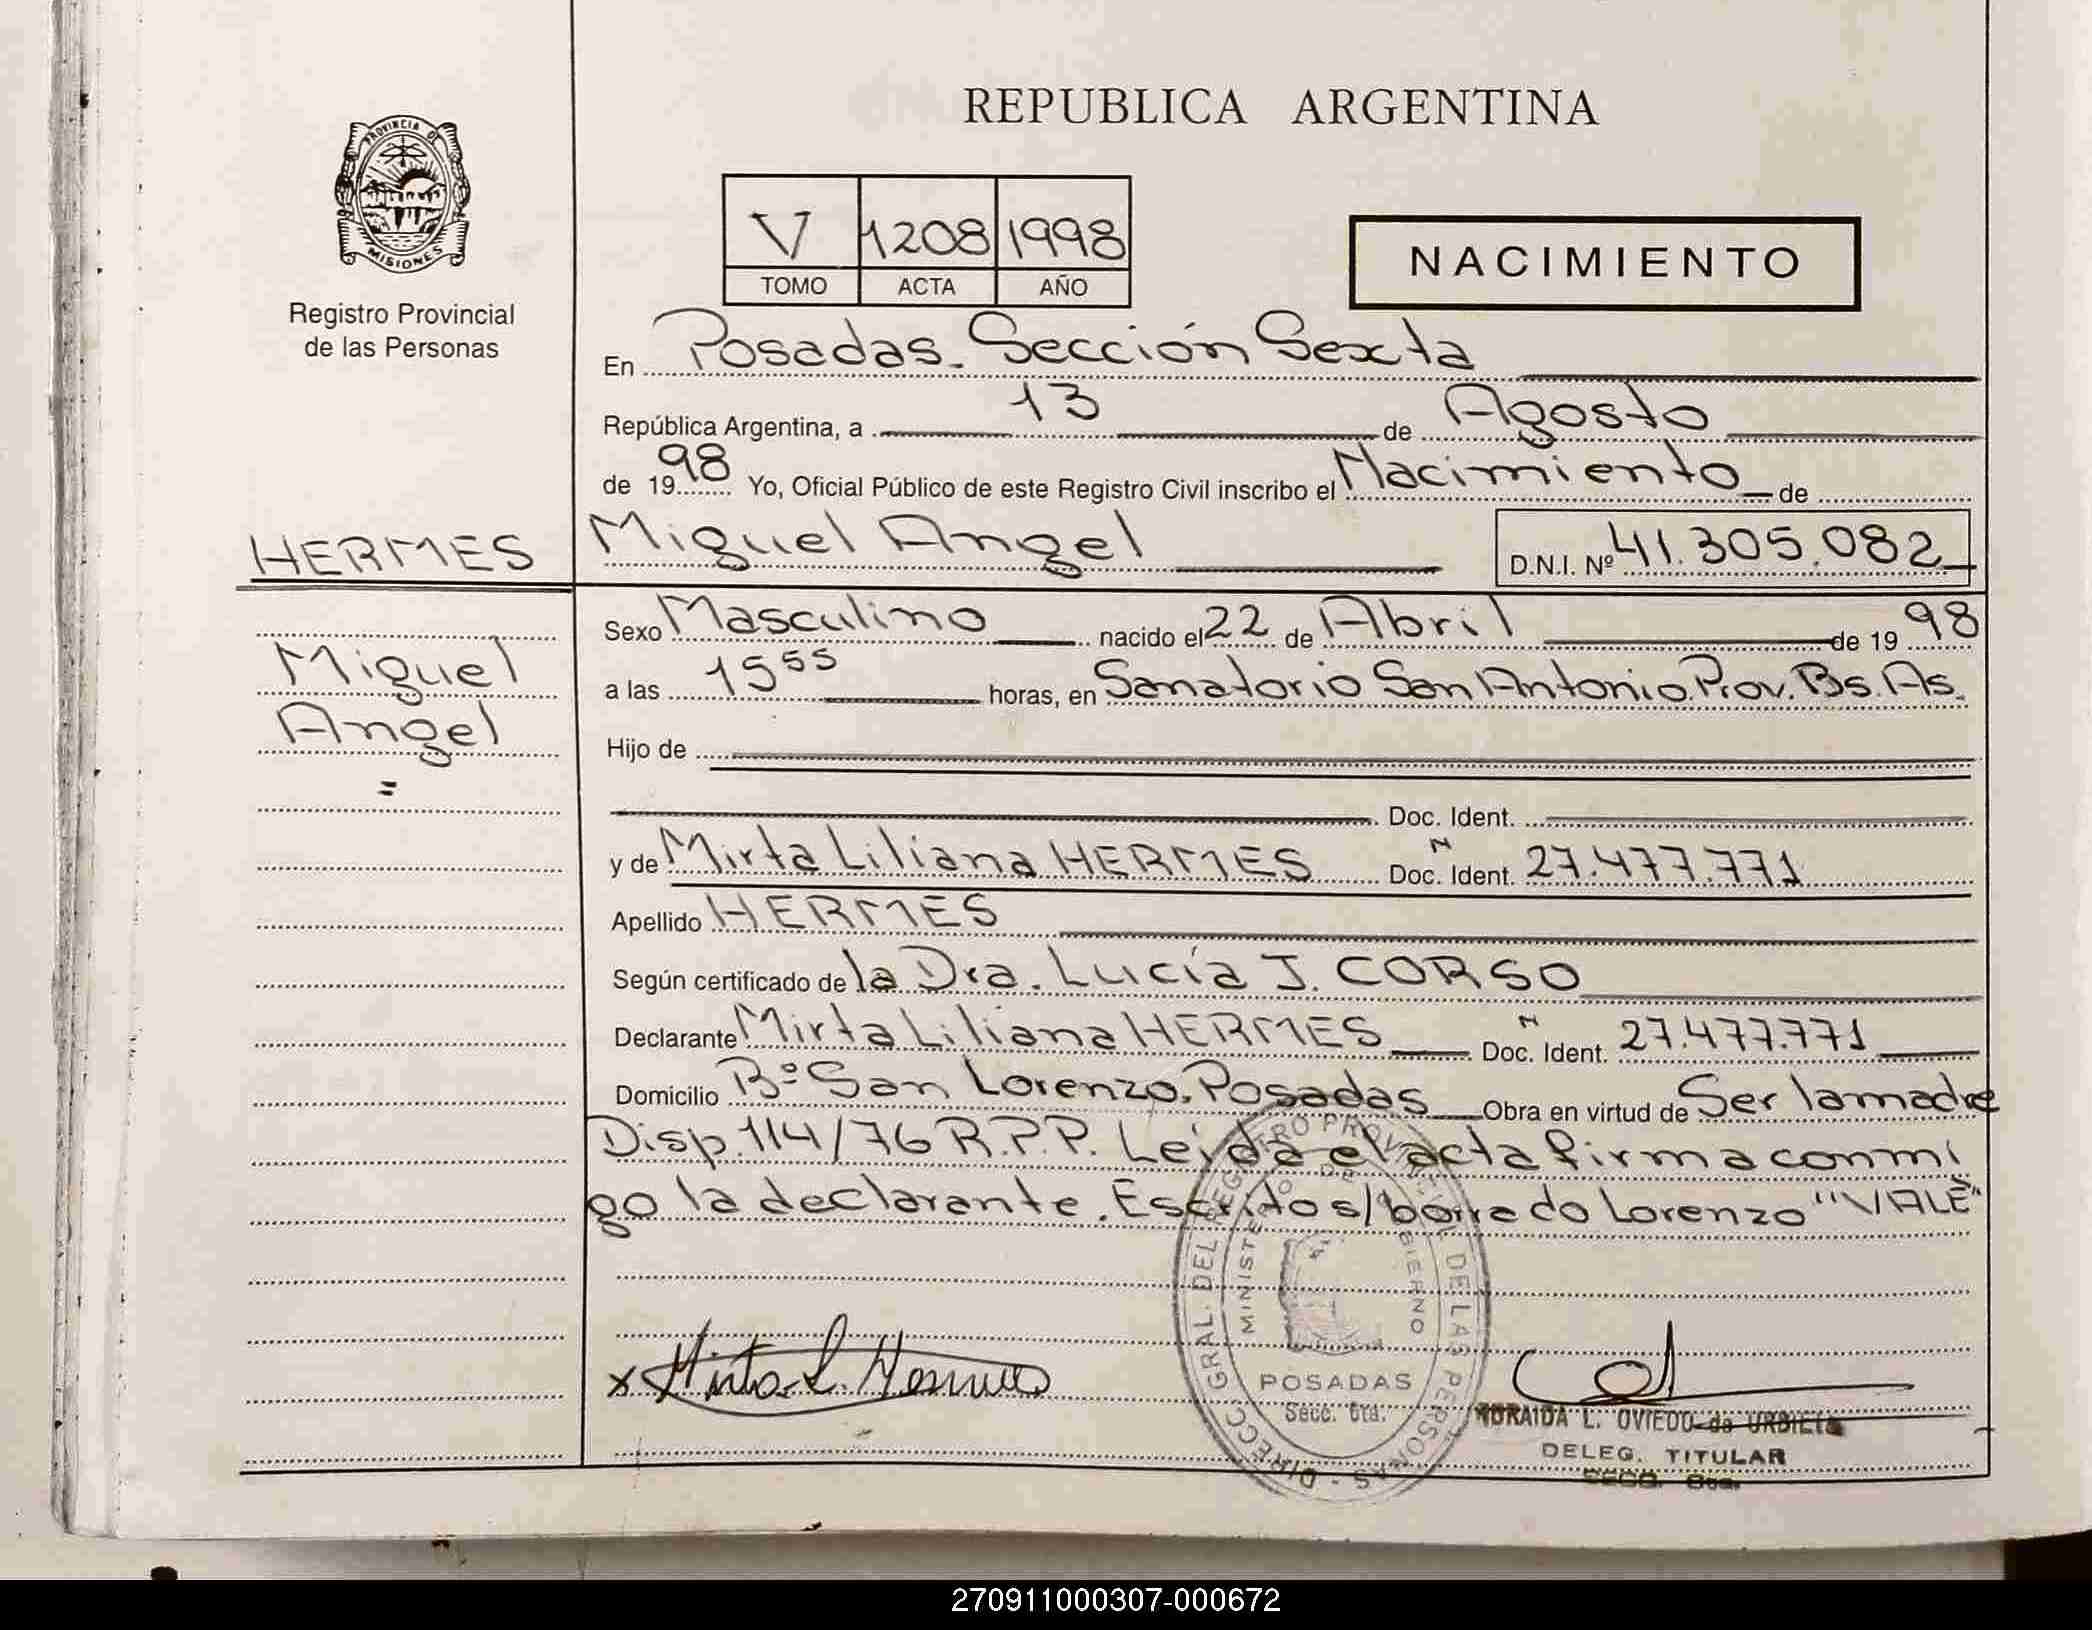 REPUBLICA ARGENTINA
PROVINCIA DE
MISIONES
Registro Provincial
de las Personas
V 1208 1998
TOMO ACTA AÑO
NACIMIENTO
En Posadas. Sección Sexta
República Argentina, a 13 de Agosto
de 1998 Yo, Oficial Público de este Registro Civil inscribo el Nacimiento de
HERMES
Miguel Angel
D.N.I. Nº 41.305.082
Miguel
Angel
=
Sexo Masculino nacido el 22 de Abril de 1998
a las 15 55 horas, en Sanatorio San Antonio. Prov. Bs. As.
Hijo de
Doc. Ident.
y de Mirta Liliana HERMES Doc. Ident. 27.477.771
Apellido HERMES
Según certificado de la Dra. Lucía J. CORSO
Declarante Mirta Liliana HERMES Doc. Ident. 27.477.771
Domicilio Bº San Lorenzo. Posadas Obra en virtud de Ser la madre
Disp. 114/76 R.P.P. Leída el acta firma conmi
go la declarante. Escrito s/borrado Lorenzo "VALE"
x Mirta L. Hermes
DIRECC. GRAL. DEL REGISTRO PROVINCIAL DE LAS PERSONAS
MINISTERIO DE GOBIERNO
POSADAS
Secc. 6ta.
L. OVIEDO de URBIETA
DELEG. TITULAR
SECC. 6ta.
270911000307-000672